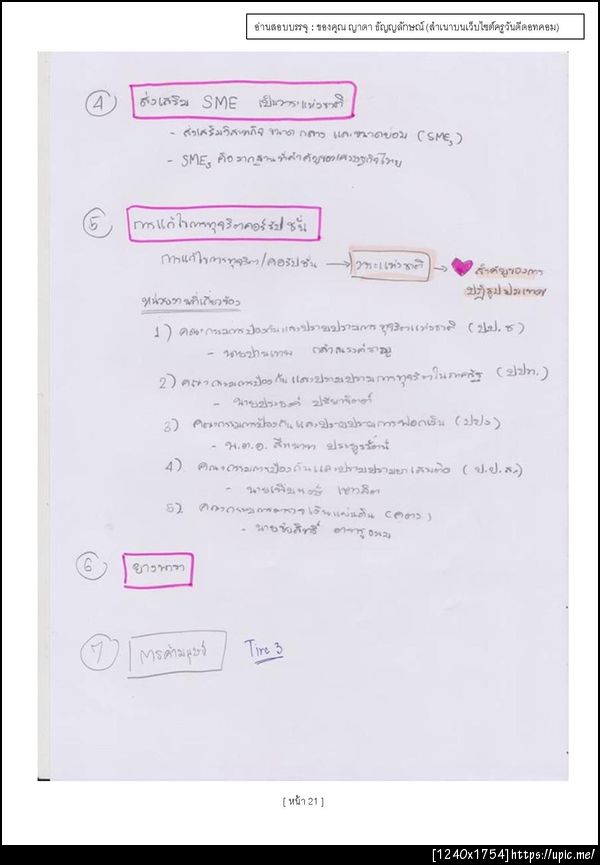 อ่านสอบบรรจุ : ของคุณ ญาดา ธัญญลักษณ์ (สำเนาบนเว็บไซต์ครูวันดีดอทคอม)
4 ส่งเสริม SME เป็นวาระแห่งชาติ
- ส่งเสริมวิสาหกิจ ขนาด กลาง และขนาดย่อม (SMEs)
- SMEs คือรากฐานที่สำคัญของเศรษฐกิจไทย
5 การแก้ไขการทุจริตคอร์รัปชั่น
การแก้ไขการทุจริต/คอรัปชั่น → วาระแห่งชาติ → สำคัญของการ
ปฏิรูปประเทศ
หน่วยงานที่เกี่ยวข้อง
1) คณะกรรมการป้องกันและปราบปรามการทุจริตแห่งชาติ (ปปช)
- นายปานเทพ กล้าณรงค์ราญ
2) คณะกรรมการป้องกันและปราบปรามการทุจริตในภาครัฐ (ปปท.)
- นายประยงค์ ปรียาจิตต์
3) คณะกรรมการป้องกันและปราบปรามการฟอกเงิน (ปปง)
- พ.ต.อ. สีหนาท ประยูรรัตน์
4) คณะกรรมการป้องกันและปราบปรามยาเสพติด (ป.ป.ส.)
- นายเพิ่มพงษ์ เชาวลิต
5) คณะกรรมการตรวจเงินแผ่นดิน (คตง)
- นายชัยสิทธิ์
6 ยางพารา
7 การค้ามนุษย์ Tire 3
[ หน้า 21 ]
[1240x1754]https://upic.me/